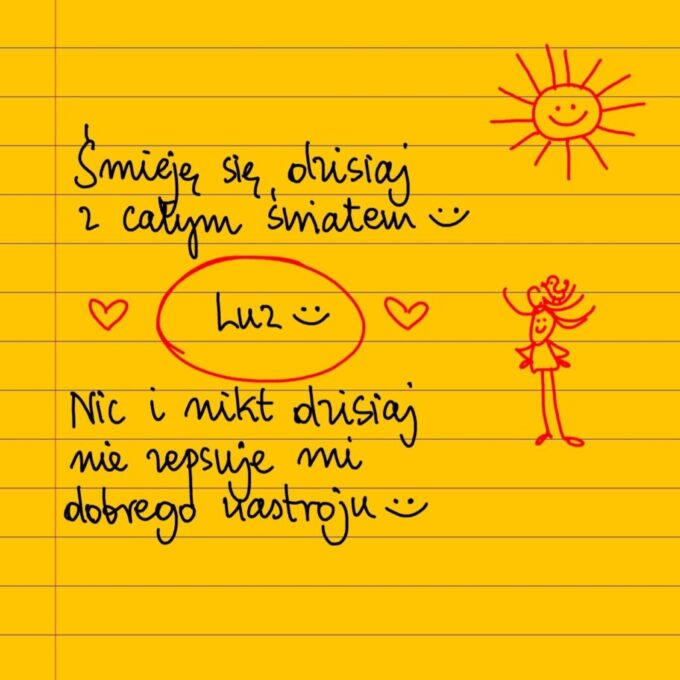 Śmieję się dzisiaj
z całym światem
Luz
Nic i nikt dzisiaj
nie zepsuje mi
dobrego nastroju